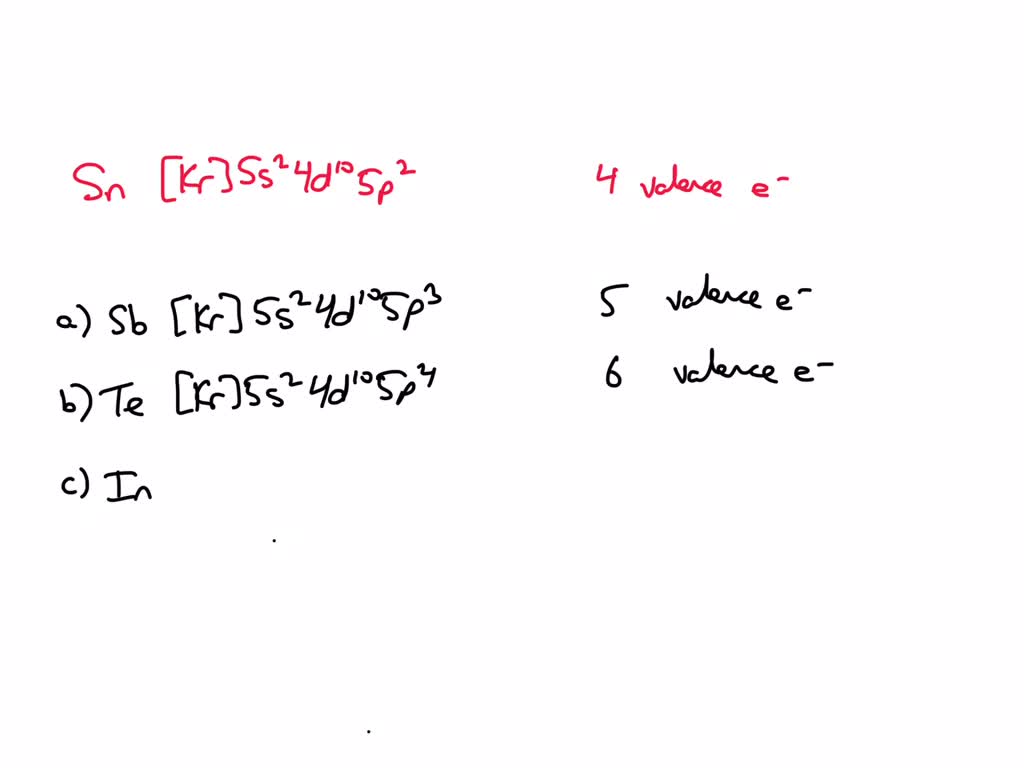 Sn [Kr]5s²4d¹⁰5p² 4 valence e⁻
a) Sb [Kr]5s²4d¹⁰5p³ 5 valence e⁻
b) Te [Kr]5s²4d¹⁰5p⁴ 6 valence e⁻
c) In